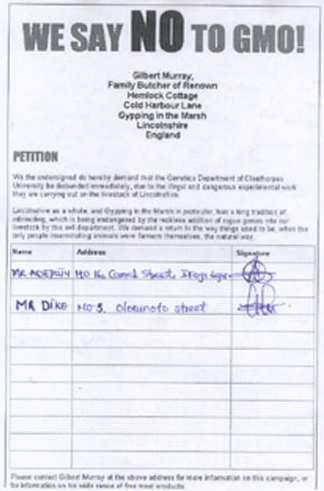 WE SAY NO TO GMO!
Gilbert Murray,
Family Butcher of Renown
Hemlock Cottage
Cold Harbour Lane
Gypping in the Marsh
Lincolnshire
England
PETITION
We the undersigned do hereby demand that the Genetics Department of Cleethorpes
University be disbanded immediately, due to the illegal and dangerous experimental work
they are carrying out on the livestock of Lincolnshire.
Lincolnshire as a whole, and Gypping in the Marsh in particular, has a long tradition of
inbreeding, which is being endangered by the reckless addition of rogue genes into our
livestock by the said department. We demand a return to the way things used to be, when the
only people inseminating animals were farmers themselves, the natural way.
Name Address Signature
MR ADENIYI NO 16 Street
MR DIKE NO 3. street
Please contact Gilbert Murray at the above address for more information on this campaign, or
for information on his wide range of fine meat products.